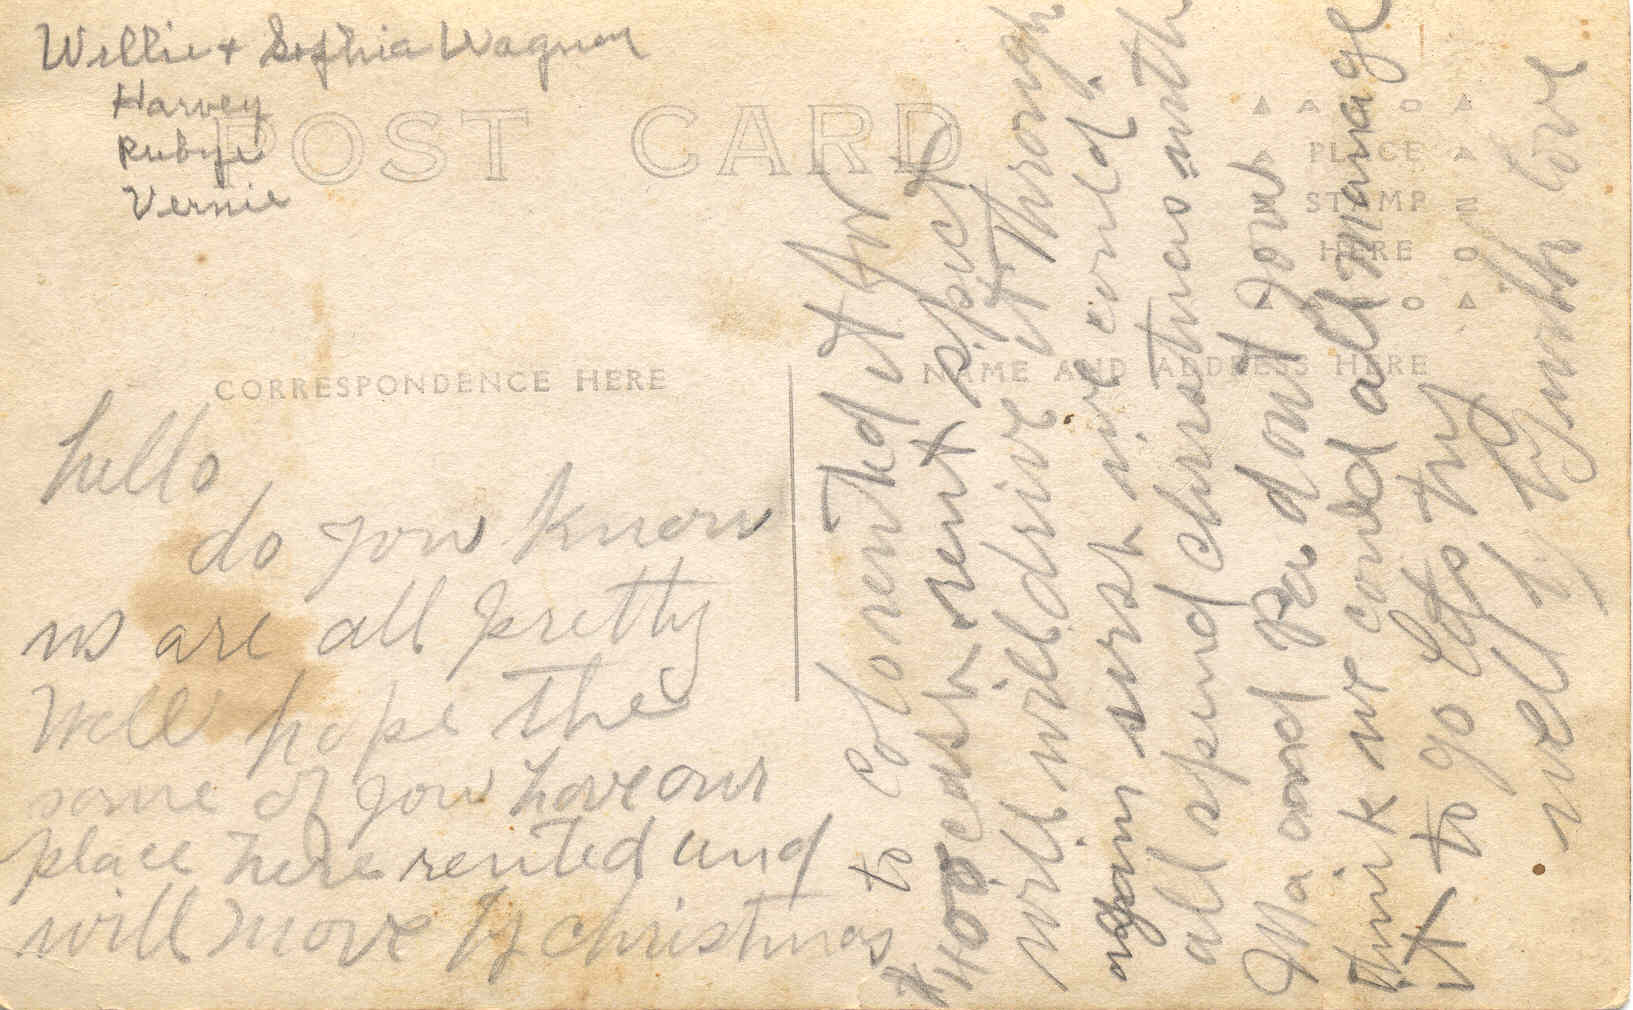 Willie + Sophia Wagner
Harvey
Rubye
Vernie
POST CARD
PLACE
STAMP
HERE
CORRESPONDENCE HERE
NAME AND ADDRESS HERE
hello
do you know
us are all pretty
Well hope the
same of you have our
place here rented and
will move by christmas
to Colo rented it for
$400 cash rent
will will drive it through
again wish we could
all spend christmas with
Ma and Pa dont you
think we could all manage
it to go Lets try
well by by with love